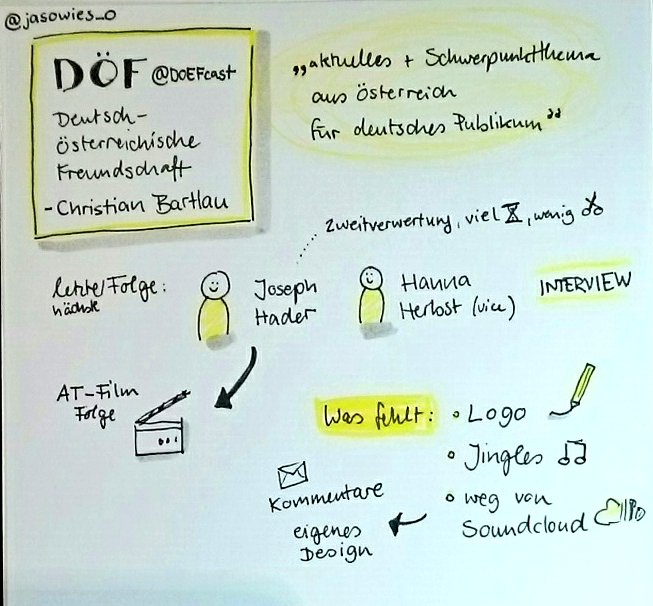 @jasowies_o
DÖF @DOEFcast
Deutsch-
österreichische
Freundschaft
- Christian Bartlau
„aktuelles + Schwerpunktthema
aus Österreich
für deutsches Publikum"
Zweitverwertung, viel , wenig
letzte/Folge:
nächste
Joseph
Hader
Hanna
Herbst (vice)
INTERVIEW
AT-Film
Folge
Was fehlt:
• Logo
• Jingles
• weg von
Soundcloud
Kommentare
eigenes
Design